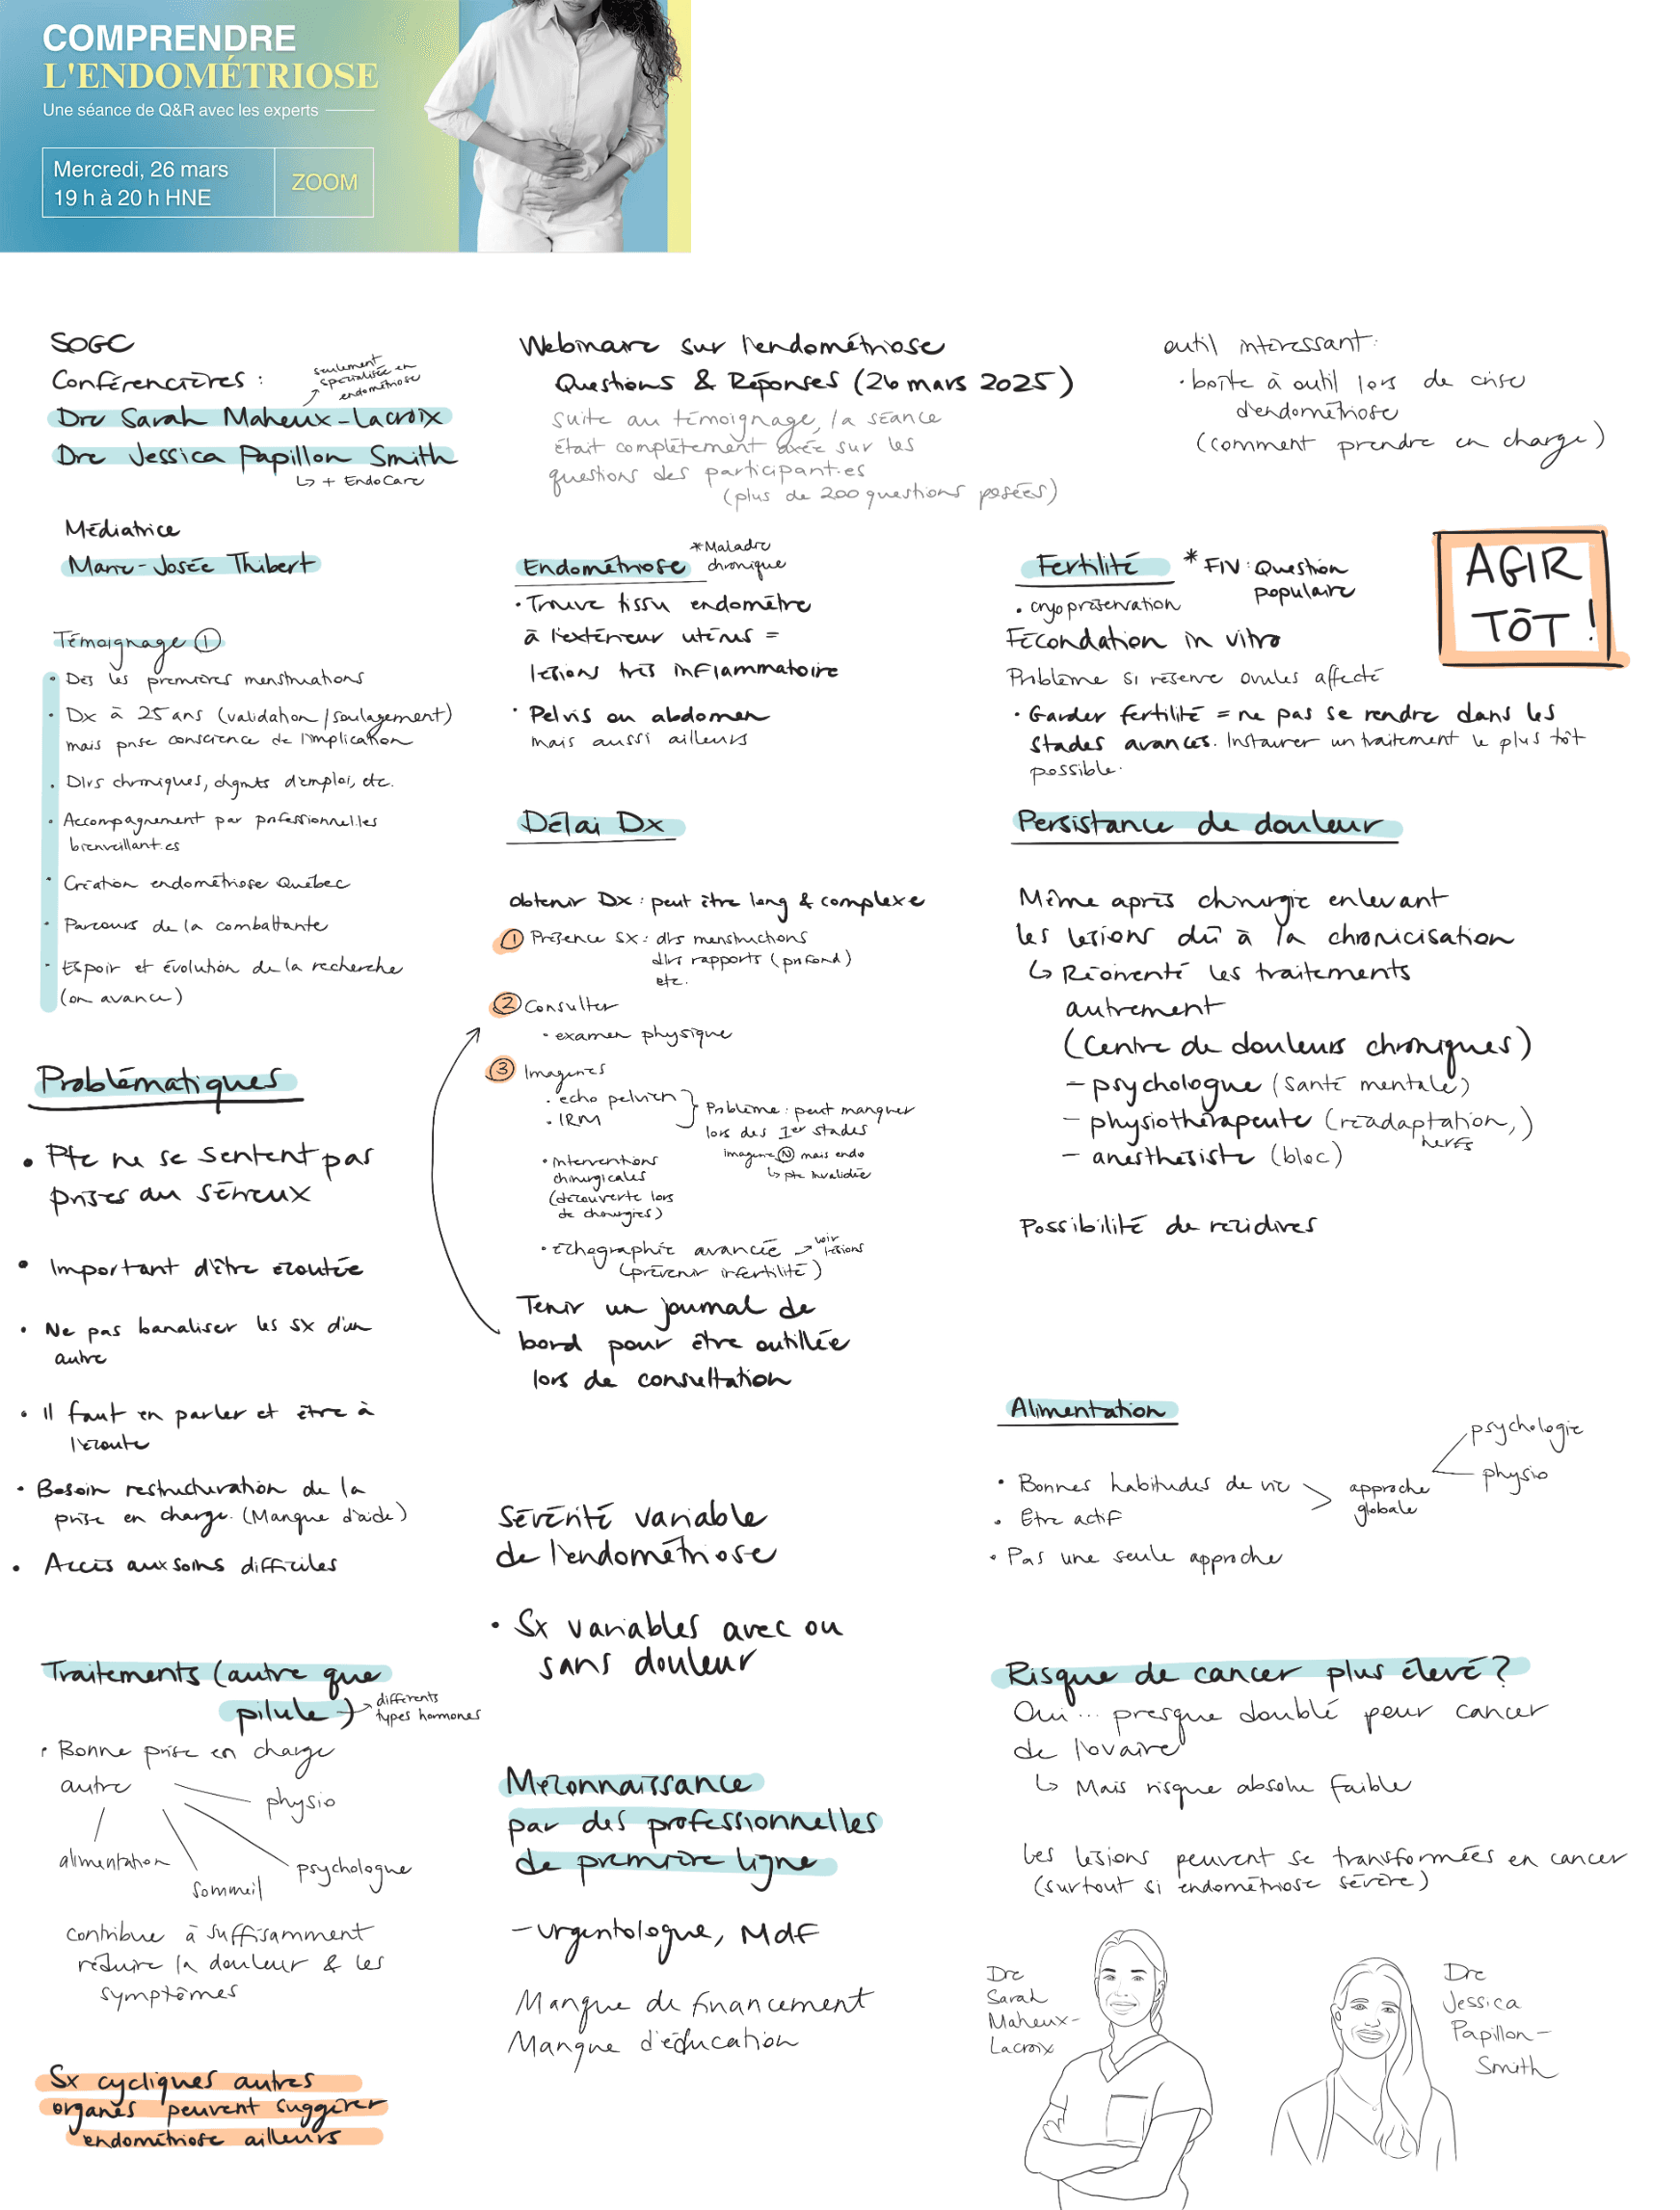 COMPRENDRE
L'ENDOMÉTRIOSE
Une séance de Q&R avec les experts
Mercredi, 26 mars
19 h à 20 h HNE
ZOOM
SOGC
Conférencières :
seulement
spécialisée en
endométriose
Dre Sarah Maheux-Lacroix
Dre Jessica Papillon Smith
↳ + EndoCare
Médiatrice
Marie-Josée Thibert
Témoignage ①
• Dès les premières menstruations
• Dx à 25 ans (validation/soulagement)
mais prise conscience de l'implication
• Dlrs chroniques, chgmts d'emploi, etc.
• Accompagnement par professionnel.les
bienveillant.es
• Création endométriose Québec
• Parcours de la combattante
• Espoir et évolution de la recherche
(on avance)
Problématiques
• Pte ne se sentent pas
prises au sérieux
• Important d'être écoutée
• Ne pas banaliser les sx d'un
autre
• Il faut en parler et être à
l'écoute
• Besoin restructuration de la
prise en charge. (Manque d'aide)
• Accès aux soins difficiles
Traitements (autre que
pilule) → différents
types hormones
• Bonne prise en charge
autre
physio
alimentation
sommeil
psychologue
contribue à suffisamment
réduire la douleur & les
symptômes
Sx cycliques autres
organes peuvent suggérer
endométriose ailleurs
Webinaire sur l'endométriose
Questions & Réponses (26 mars 2025)
suite au témoignage, la séance
était complètement axée sur les
questions des participant.es
(plus de 200 questions posées)
Endométriose
*Maladie
chronique
• Trouve tissu endomètre
à l'extérieur utérus =
lésions très inflammatoire
• Pelvis ou abdomen
mais aussi ailleurs
Délai Dx
obtenir Dx : peut être long & complexe
① Présence sx : dlrs menstructions
dlrs rapports (profond)
etc.
② Consulter
• examen physique
③ Imageries
• echo pelvien
• IRM
Problème : peut manquer
lors des 1er stades
imagerie Ⓝ mais endo
↳ pte invalidée
• Interventions
chirurgicales
(découverte lors
de chirurgies)
• échographie avancée → voir
lésions
(prévenir infertilité)
Tenir un journal de
bord pour être outillée
lors de consultation
Sévérité variable
de l'endométriose
• Sx variables avec ou
sans douleur
Méconnaissance
par des professionnelles
de première ligne
- urgentologue, MdF
Manque de financement
Manque d'éducation
outil intéressant:
• boîte à outil lors de crise
d'endométriose
(comment prendre en charge)
Fertilité
* FIV : Question
populaire
• cryopréservation
Fécondation in vitro
Problème si réserve ovules affecté
• Garder fertilité = ne pas se rendre dans les
stades avancés. Instaurer un traitement le plus tôt
possible.
AGIR
TÔT !
Persistance de douleur
Même après chirurgie enlevant
les lésions dû à la chronicisation
↳ Réorienté les traitements
autrement
(Centre de douleurs chroniques)
- psychologue (santé mentale)
- physiothérapeute (réadaptation,)
nerfs
- anesthésiste (bloc)
Possibilité de récidives
Alimentation
• Bonnes habitudes de vie
• Être actif
approche
globale
psychologie
physio
• Pas une seule approche
Risque de cancer plus élevé ?
Oui... presque doublé pour cancer
de l'ovaire
↳ Mais risque absolu faible
Les lésions peuvent se transformées en cancer
(surtout si endométriose sévère)
Dre
Sarah
Maheux-
Lacroix
Dre
Jessica
Papillon-
Smith